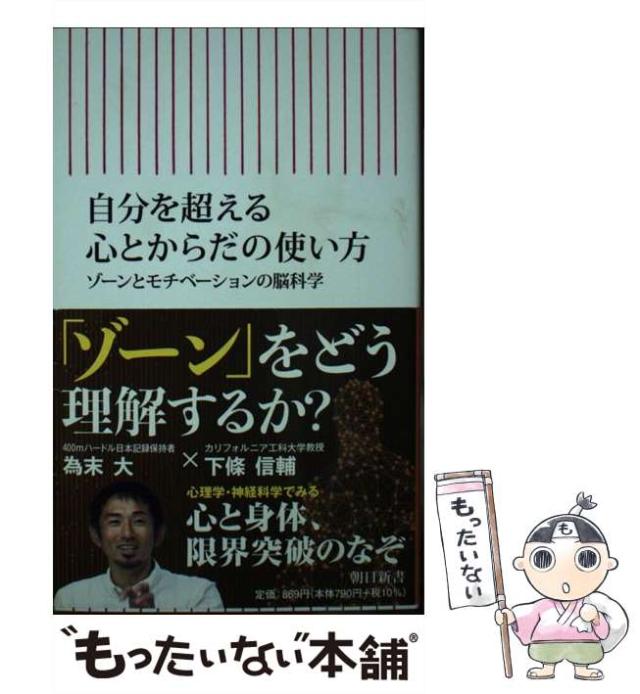 自分を超える
心とからだの使い方
ゾーンとモチベーションの脳科学
「ゾーン」をどう
理解するか?
400mハードル日本記録保持者
為末 大
×
カリフォルニア工科大学教授
下條 信輔
心理学・神経科学でみる
心と身体、
限界突破のなぞ
朝日新書
定価:869円(本体790円+税10%)
も
もったいない
"もったいない"本舗®